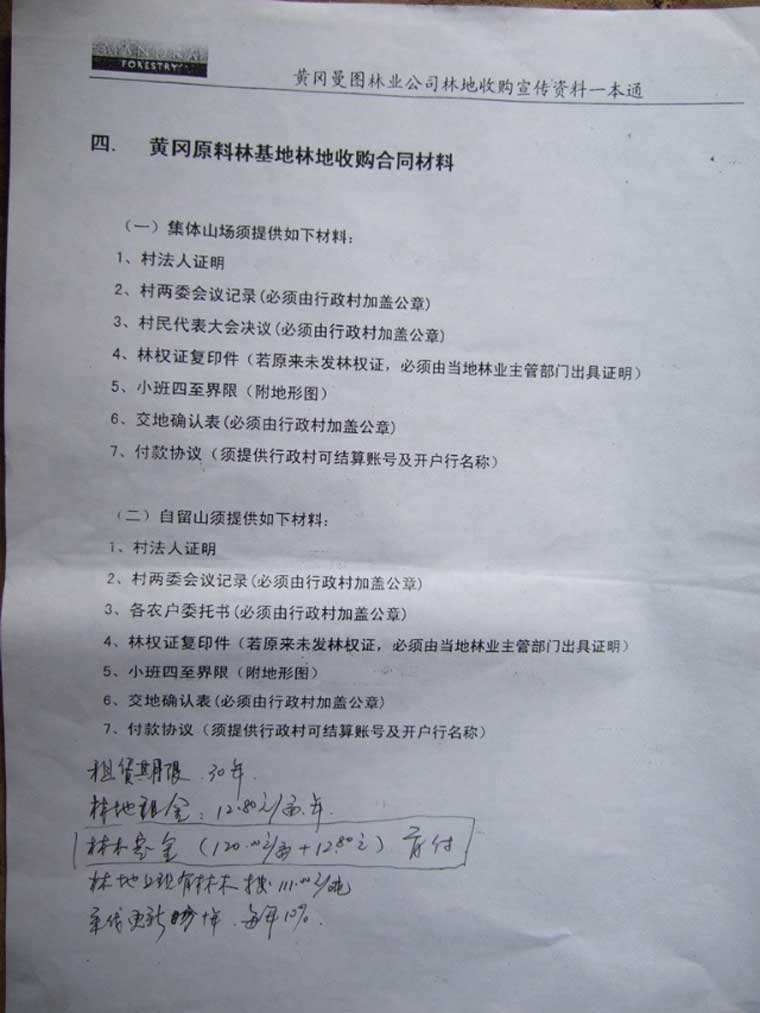 FORESTRY
黄冈曼图林业公司林地收购宣传资料一本通
四. 黄冈原料林基地林地收购合同材料
（一）集体山场须提供如下材料：
1、村法人证明
2、村两委会议记录(必须由行政村加盖公章)
3、村民代表大会决议(必须由行政村加盖公章)
4、林权证复印件（若原来未发林权证，必须由当地林业主管部门出具证明）
5、小班四至界限（附地形图）
6、交地确认表(必须由行政村加盖公章)
7、付款协议（须提供行政村可结算账号及开户行名称）
（二）自留山须提供如下材料：
1、村法人证明
2、村两委会议记录(必须由行政村加盖公章)
3、各农户委托书(必须由行政村加盖公章)
4、林权证复印件（若原来未发林权证，必须由当地林业主管部门出具证明）
5、小班四至界限（附地形图）
6、交地确认表(必须由行政村加盖公章)
7、付款协议（须提供行政村可结算账号及开户行名称）
租赁期限 30年.
林地租金: 12.80元/亩.年.
林木 金 (120.00元/亩+12.80元) 付
林地上现有林木按111.00元/吨
更新 年. 每年10%.